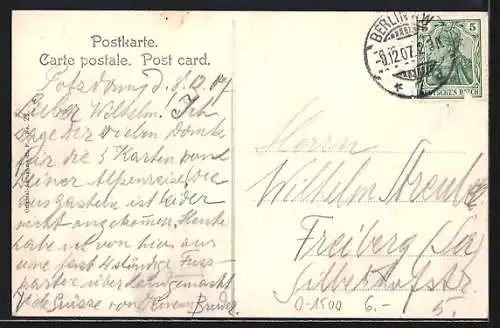 Postkarte.
Carte postale. Post card.
Potsdam, d. 8.12.07
Lieber Wilhelm! Ich
sage dir vielen Dank
für die 3 Karten von
deiner Alpenreise die
aus Gastein ist leider
nicht angekommen. Heute
habe ich von hier aus
eine fast 4 stündige Fuss-
partie über Land gemacht
Viele Grüsse von Deinem Bruder
BERLIN
12.07
5
DEUTSCHES REICH
Herrn
Wilhelm
Freiberg (Sa)
Silberhofstr.
5.
0-1500 6.-